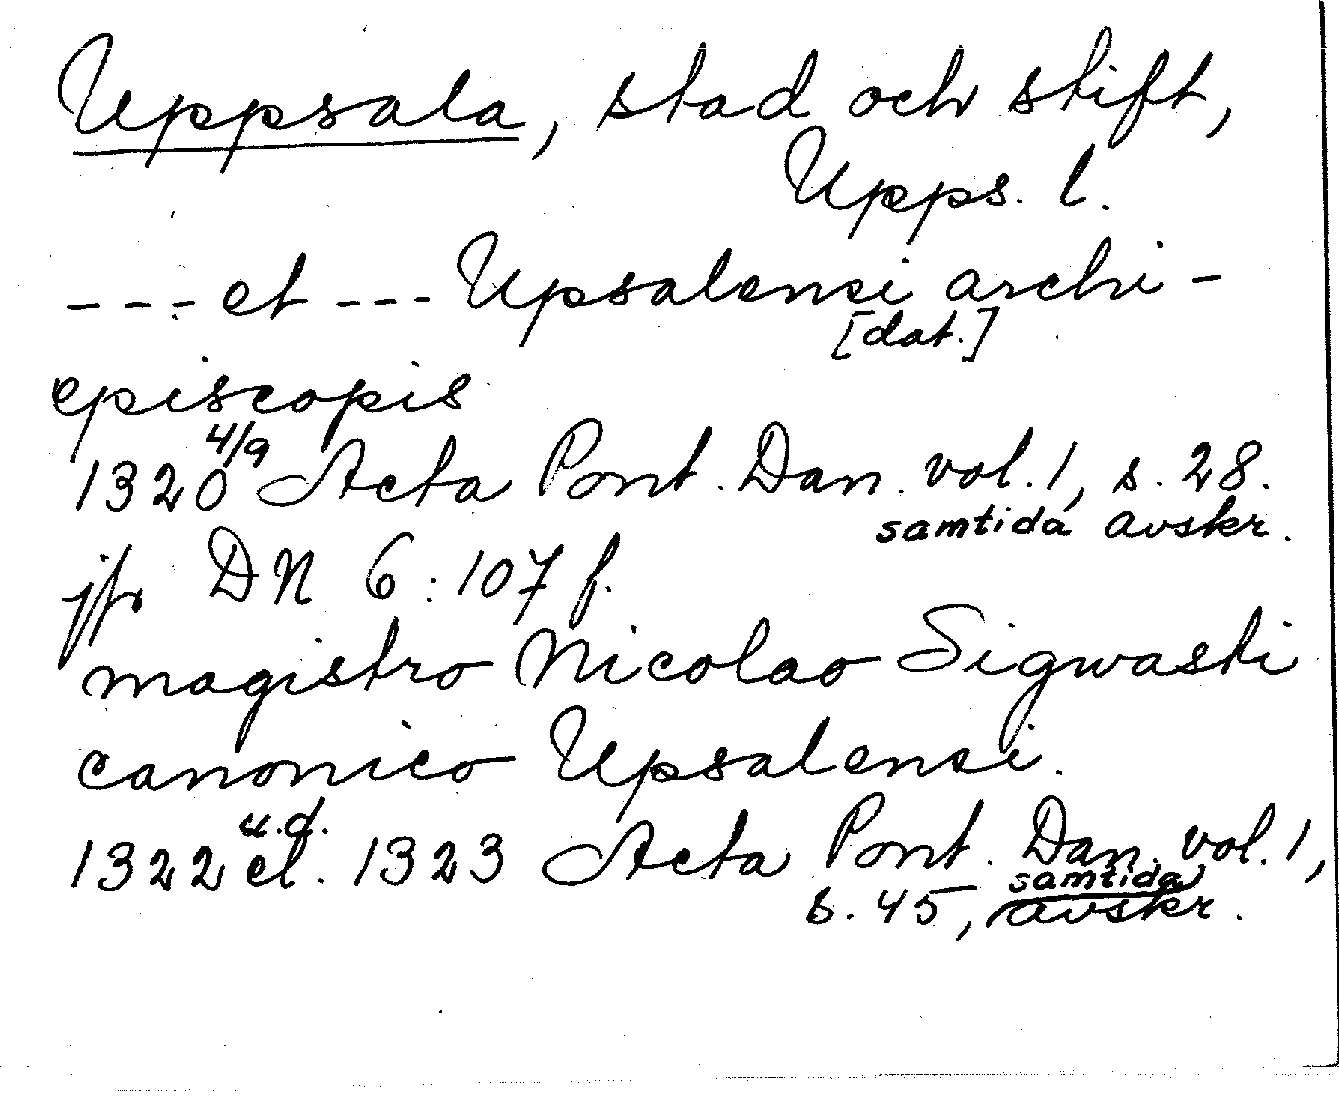 Uppsala, stad och stift,
Upps. l.
--- et --- Upsalensi archi-
[dat.]
episcopis
1320 4/9 Acta Pont. Dan. vol. 1, s. 28.
samtida avskr.
jfr DN 6:107 f.
magistro Nicolao Sigwasti
canonico Upsalensi.
u.d.
1322 el. 1323 Acta Pont. Dan. vol. 1,
s. 45, samtida avskr.